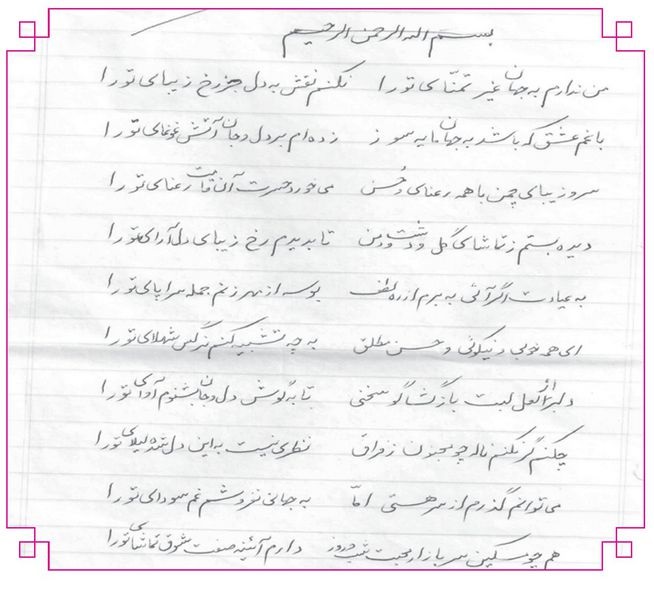 بسم الله الرحمن الرحیم
من ندارم به جهان غیر تمنّای تو را نکنم نقش به دل جز رخ زیبای تو را
با غم عشق که باشد به جهان مایه سوز زده‌ام بر دل و جان آتش غوغای تو را
سرو زیبای چمن با همه رعنای و حُسن می‌خورد حسرت آن قامت رعنای تو را
دیده بستم ز تماشای گل و دشت و دمن تا بدیدم رخ زیبای دل‌آرای تو را
به عیادت اگر آئی به برم از ره لطف بوسه از مهر زنم جمله سراپای تو را
ای همه خوبی و نیکوئی و حسن مطلق به چه تشبیه کنم نرگس شهلای تو را
دلبرا از لعل لبت باز گشا گو سخنی تا به گوش دل و جان بشنوم آوای تو را
چکنم گر نکنم ناله چو مجنون ز فراق نظری نیست به این دل شده لیلای تو را
می‌توانم گذرم از سر هستی امّا به جهانی نفروشم غم سودای تو را
هم چو مسکین سر بازار محبت شب و روز دارم آئینه صفت شوق تماشای تو را